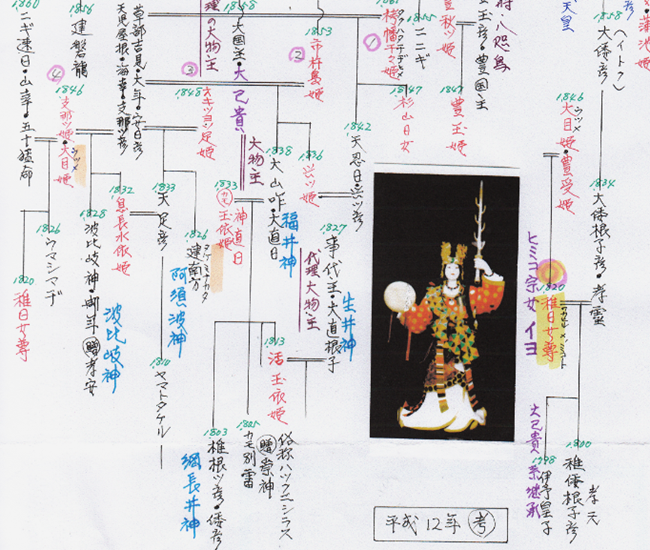 天皇
1858
大倭彦
1846
大日姫・豊受姫
1834
大倭根子彦・孝霊
ヒミコ宗女イヨ
1820
稚日女尊
大己貴系継承
1798
伊予皇子
1800
稚倭根子彦
孝元
豊秋ツ姫
豊国主
1847
豊玉姫
1855
ニニギ
1847
杉山日女
①
1842
天忍日・
1853
市杵島姫
②
1836
1838
大山咋・大直日
福井神
1827
事代主・大直根子
生井神
代理大物主
大国主・大己貴
大物主
1833
神直日
玉依姫
1813
活玉依姫
1805
カモ別雷
崇神
俗称ハツクニシラス
1803
椎根ツ彦・倭彦
綱長井神
代理の大物主
③
1848
草部吉見・大年・安日彦
天児屋根・海幸・支那ツ彦
1833
天足彦
1826
建南方
阿須波神
1810
ヤマトタケル
1860
ニギ速日・山幸・五十猛命
1856
建磐龍
④
1846
支那ツ姫・大日姫
1832
息長水依姫
1828
波比岐神・御年
孝安
波比岐神
1826
ウマシマデ
1820
稚日女尊
平成12年 考